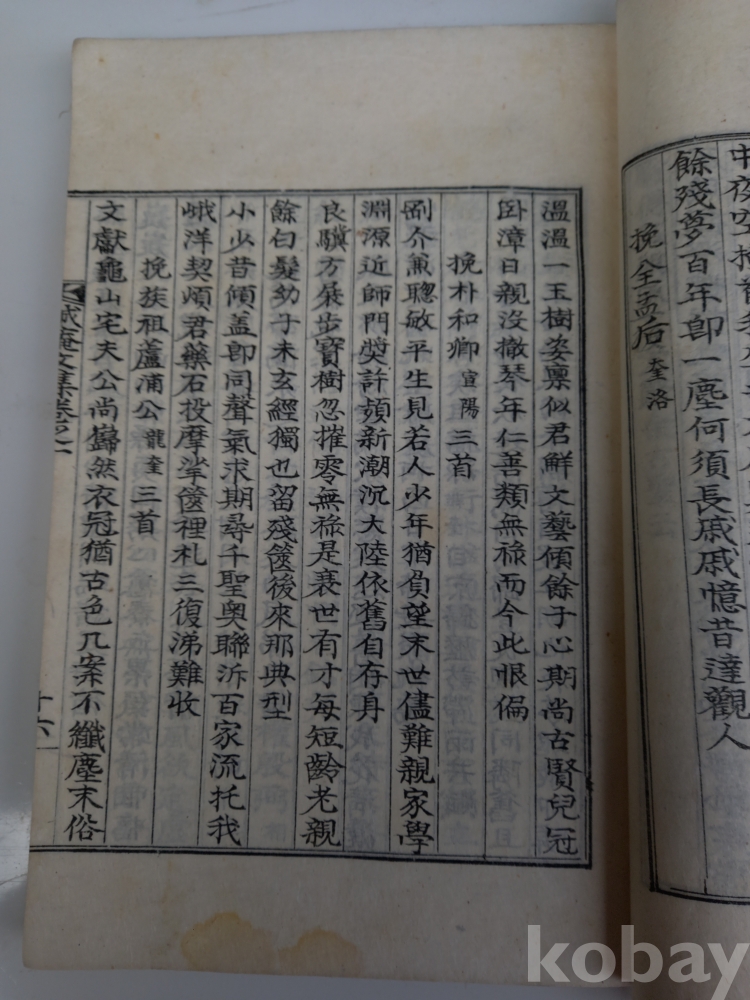 餘殘夢百年卽一塵何須長戚戚憶昔達觀人
挽全孟后 奎洛
溫溫一玉樹姿稟似君鮮文藝傾餘子心期尚古賢兒冠
卧漳日親沒撤琴年仁善類無祿而今此恨偏
挽朴和卿 宣陽 三首
剛介兼聰敏平生見若人少年猶負望末世儘難親家學
淵源近師門奬許頻新潮沉大陸依舊自存身
良驥方展步寶樹忽摧零無祿是衰世有才每短齡老親
餘白髮幼子未玄經獨也留殘篋後來那典型
小少昔傾盖卽同聲氣求期尋千聖奧聯泝百家流托我
峨洋契煩君藥石投摩挲篋裡札三復涕難收
挽族祖蘆浦公 龍奎 三首
文獻龜山宅夫公尚巋然衣冠猶古色几案不纖塵末俗
庵文集卷之一
十六
kobay